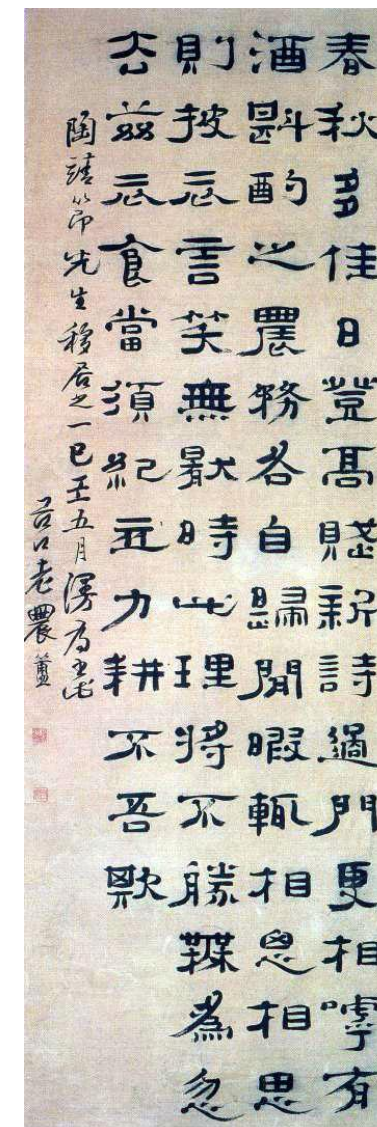 春秋多佳日登高賦新詩過門更相嘑有
酒斟酌之農務各自歸閒暇輒相思相思
則披衣言笑無厭時此理將不勝為忽
去茲衣食當須紀力耕不吾欺
陶靖節先生移居之一己壬五月漫為書此
谷口老農簠